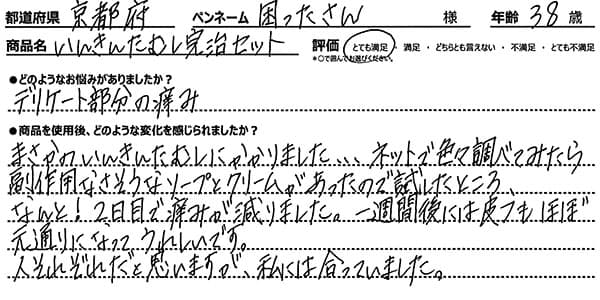 都道府県 京都府 ペンネーム 困ったさん 様 年齢 38 歳
商品名 いんきんたむし完治セット 評価 とても満足 ・ 満足 ・ どちらとも言えない ・ 不満足 ・ とても不満足
*○で囲んでお選びください。
●どのようなお悩みがありましたか？
デリケート部分の痒み
●商品を使用後、どのような変化を感じられましたか？
まさかのいんきんたむしにかかりました、、、ネットで色々調べてみたら
副作用なさそうなソープとクリームがあったので試したところ、
なんと！2日目で痒みが減りました。一週間後には皮フもほぼ
元通りになってうれしいです。
人それぞれだと思いますが、私には合っていました。